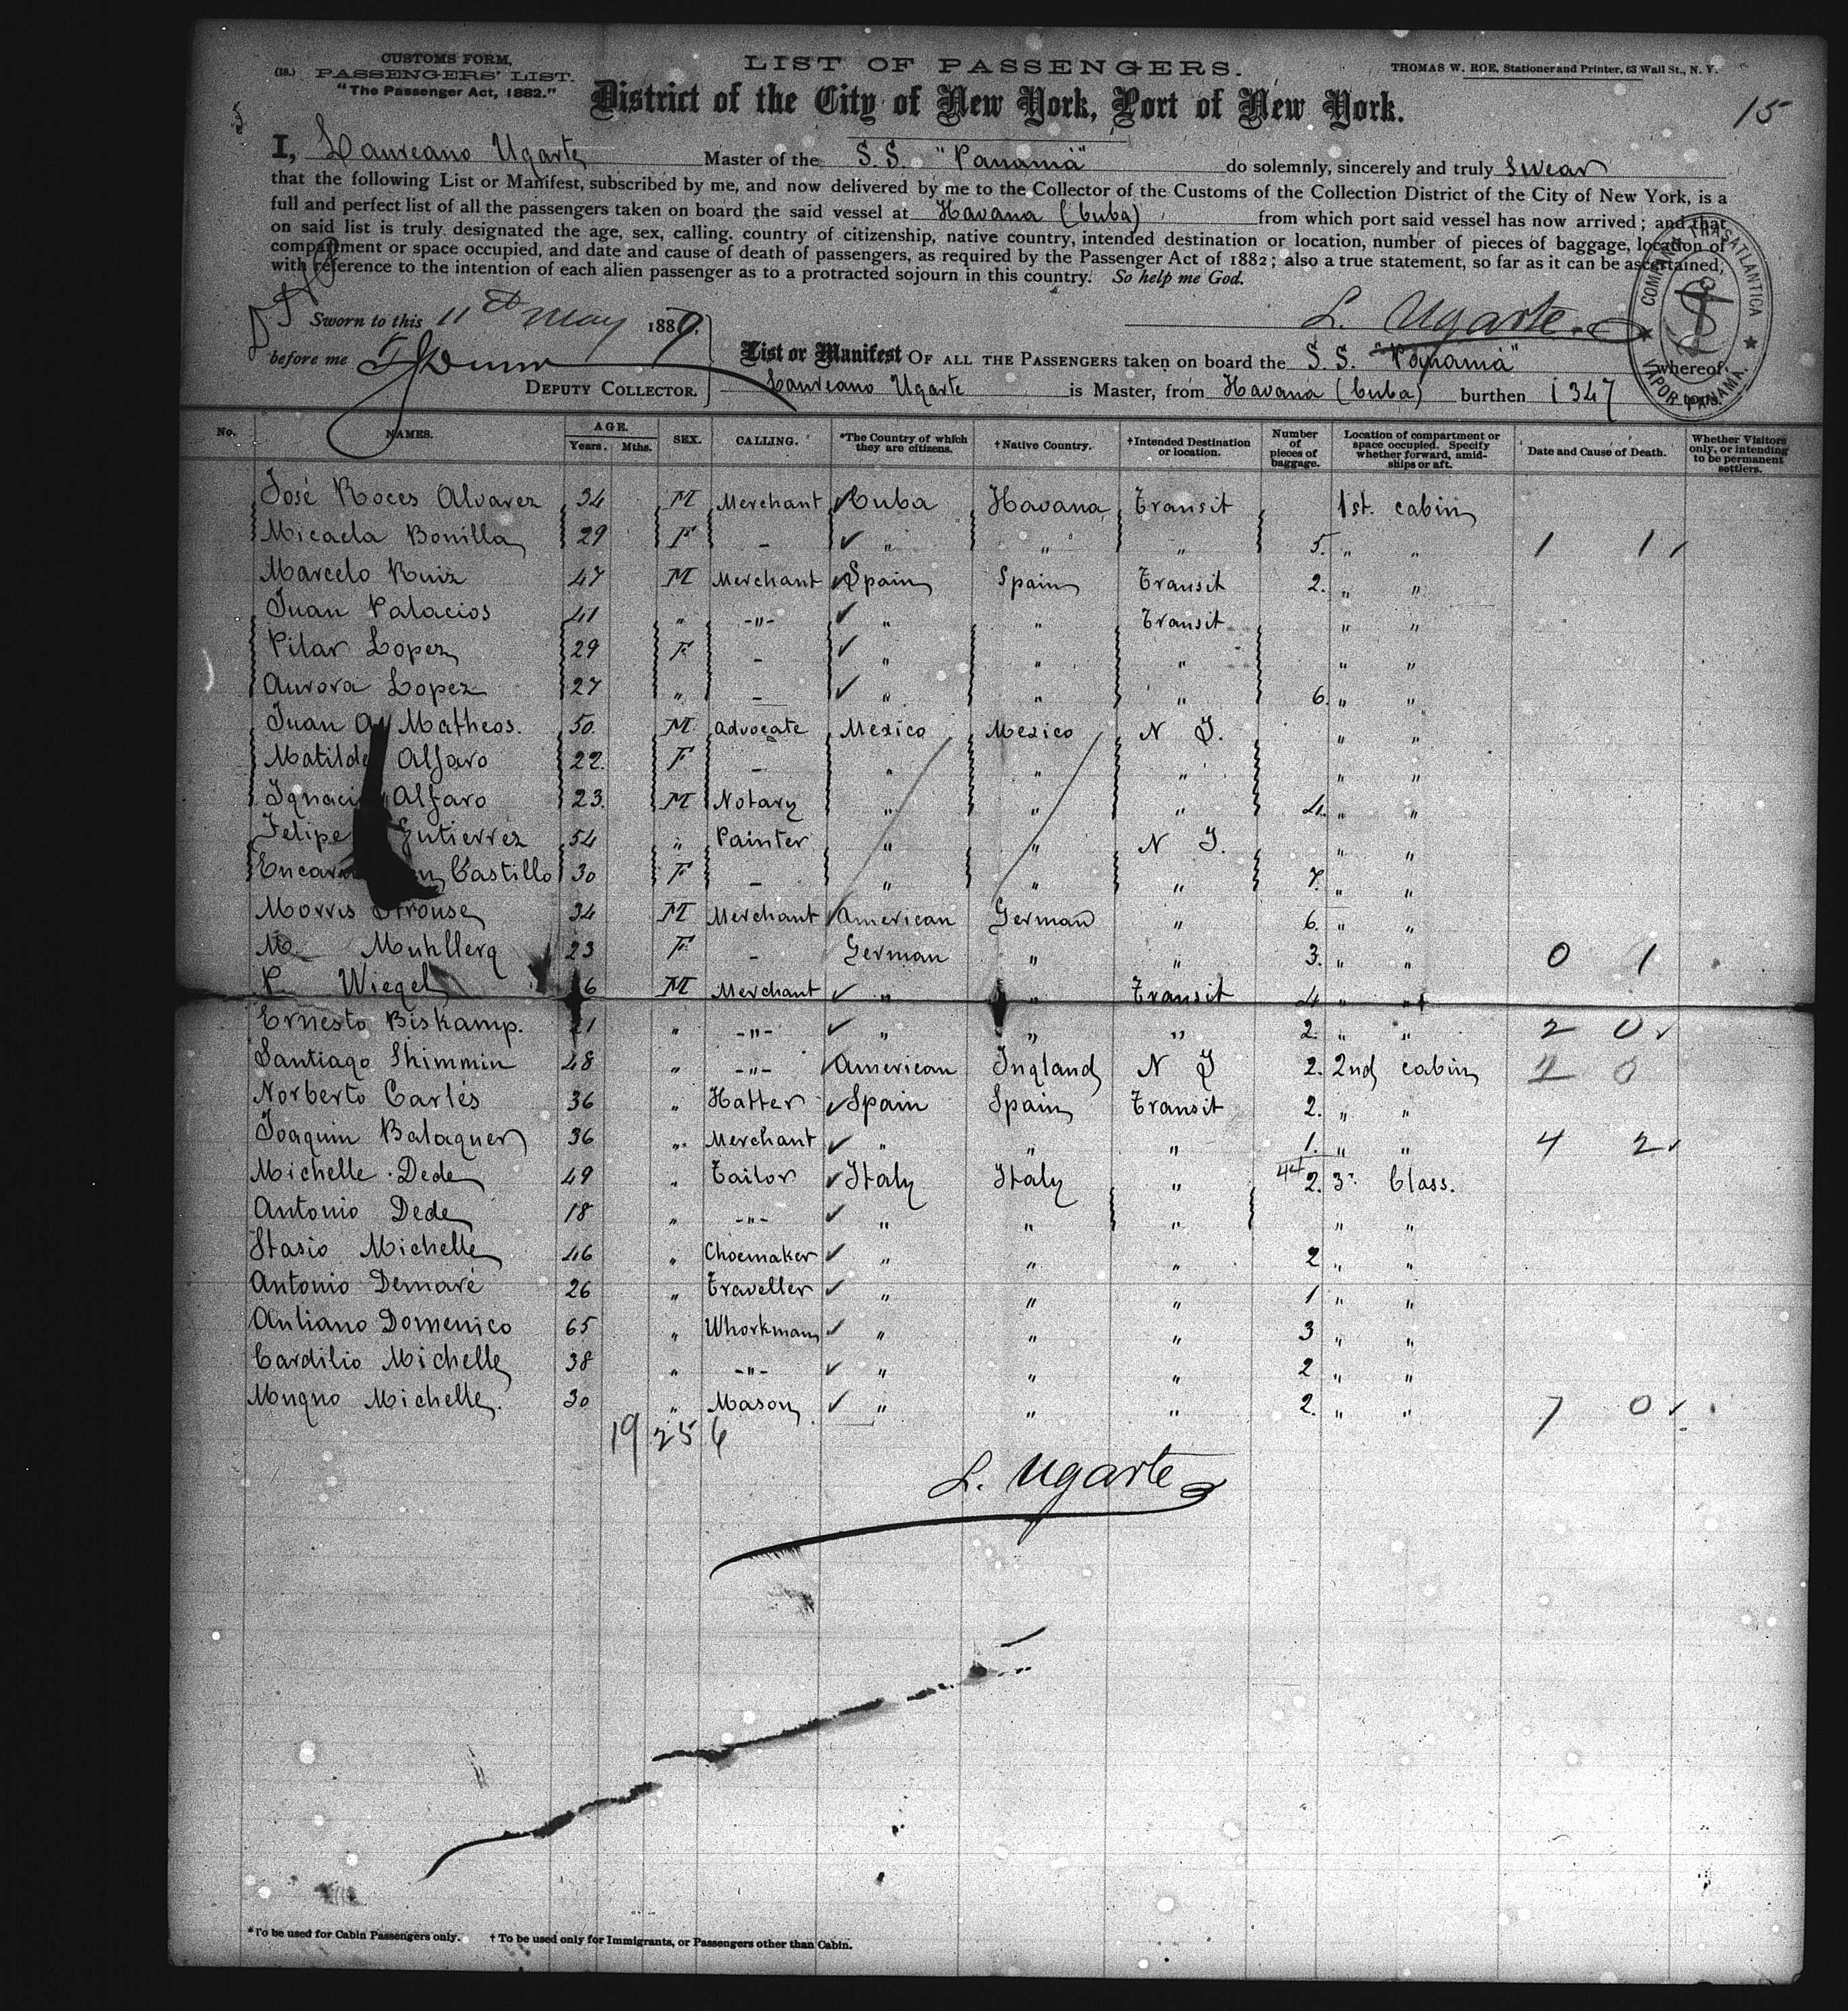 CUSTOMS FORM,
(18.) PASSENGERS' LIST.
"The Passenger Act, 1882."
LIST OF PASSENGERS.
THOMAS W. ROE, Stationer and Printer, 63 Wall St., N. Y.
District of the City of New York, Port of New York.
15
I, Laureano Ugarte Master of the S. S. "Panamá" do solemnly, sincerely and truly swear
that the following List or Manifest, subscribed by me, and now delivered by me to the Collector of the Customs of the Collection District of the City of New York, is a
full and perfect list of all the passengers taken on board the said vessel at Havana (Cuba) from which port said vessel has now arrived; and that
on said list is truly designated the age, sex, calling, country of citizenship, native country, intended destination or location, number of pieces of baggage, location of
compartment or space occupied, and date and cause of death of passengers, as required by the Passenger Act of 1882; also a true statement, so far as it can be ascertained,
with reference to the intention of each alien passenger as to a protracted sojourn in this country. So help me God.
COMPAÑIA TRASATLANTICA
VAPOR PANAMA.
Sworn to this 11th May 1889.
L. Ugarte
before me
DEPUTY COLLECTOR.
List or Manifest OF ALL THE PASSENGERS taken on board the S. S. "Panamá" whereof
Laureano Ugarte is Master, from Havana (Cuba) burthen 1347 tons.
No. NAMES. AGE. Years. Mths. SEX. CALLING. *The Country of which they are citizens. †Native Country. †Intended Destination or location. Number of pieces of baggage. Location of compartment or space occupied. Specify whether forward, amidships or aft. Date and Cause of Death. Whether Visitors only, or intending to be permanent settlers.
José Roces Alvarez 34 M Merchant Cuba Havana Transit 1st. cabin
Micaela Bonilla 29 F - " " " 5. " " 1 1
Marcelo Ruiz 47 M Merchant Spain Spain Transit 2. " "
Juan Palacios 41 " -"- " " Transit " "
Pilar Lopez 29 F - " " " " "
Aurora Lopez 27 " - " " " 6. " "
Juan A Matheos. 50. M advocate Mexico Mexico N Y. " "
Matilde Alfaro 22. F - " " " " "
Ignacio Alfaro 23. M Notary " " " 4. " "
Felipe Gutierrez 54 " Painter " " N Y. " "
Castillo 30 F - " " " 7. " "
Morris Strouse 34 M Merchant American German " 6. " "
M. Muhllerg 23 F - German " " 3. " " 0 1
P. Wiegel 6 M Merchant " " Transit 4 " "
Ernesto Biskamp. 21 " -"- " " " 2. " " 2 0
Santiago Shimmin 48 " -"- American Ingland N Y 2. 2nd cabin 2 0
Norberto Carlés 36 " Hatter Spain Spain Transit 2. " "
Joaquin Balaguer 36 " Merchant " " " 1. " " 4 2
44
Michelle Dede 49 " Tailor Italy Italy " 2. 3ª Class.
Antonio Dede 18 " -"- " " " " "
Stasio Michelle 46 " Choemaker " " " 2 " "
Antonio Demaré 26 " Traveller " " " 1 " "
Antiano Domenico 65 " Whorkman " " " 3 " "
Cardilio Michelle 38 " -"- " " " 2 " "
Mugno Michelle. 30 " Mason " " " 2. " " 7 0
19 25 6
L. Ugarte
*To be used for Cabin Passengers only. †To be used only for Immigrants, or Passengers other than Cabin.